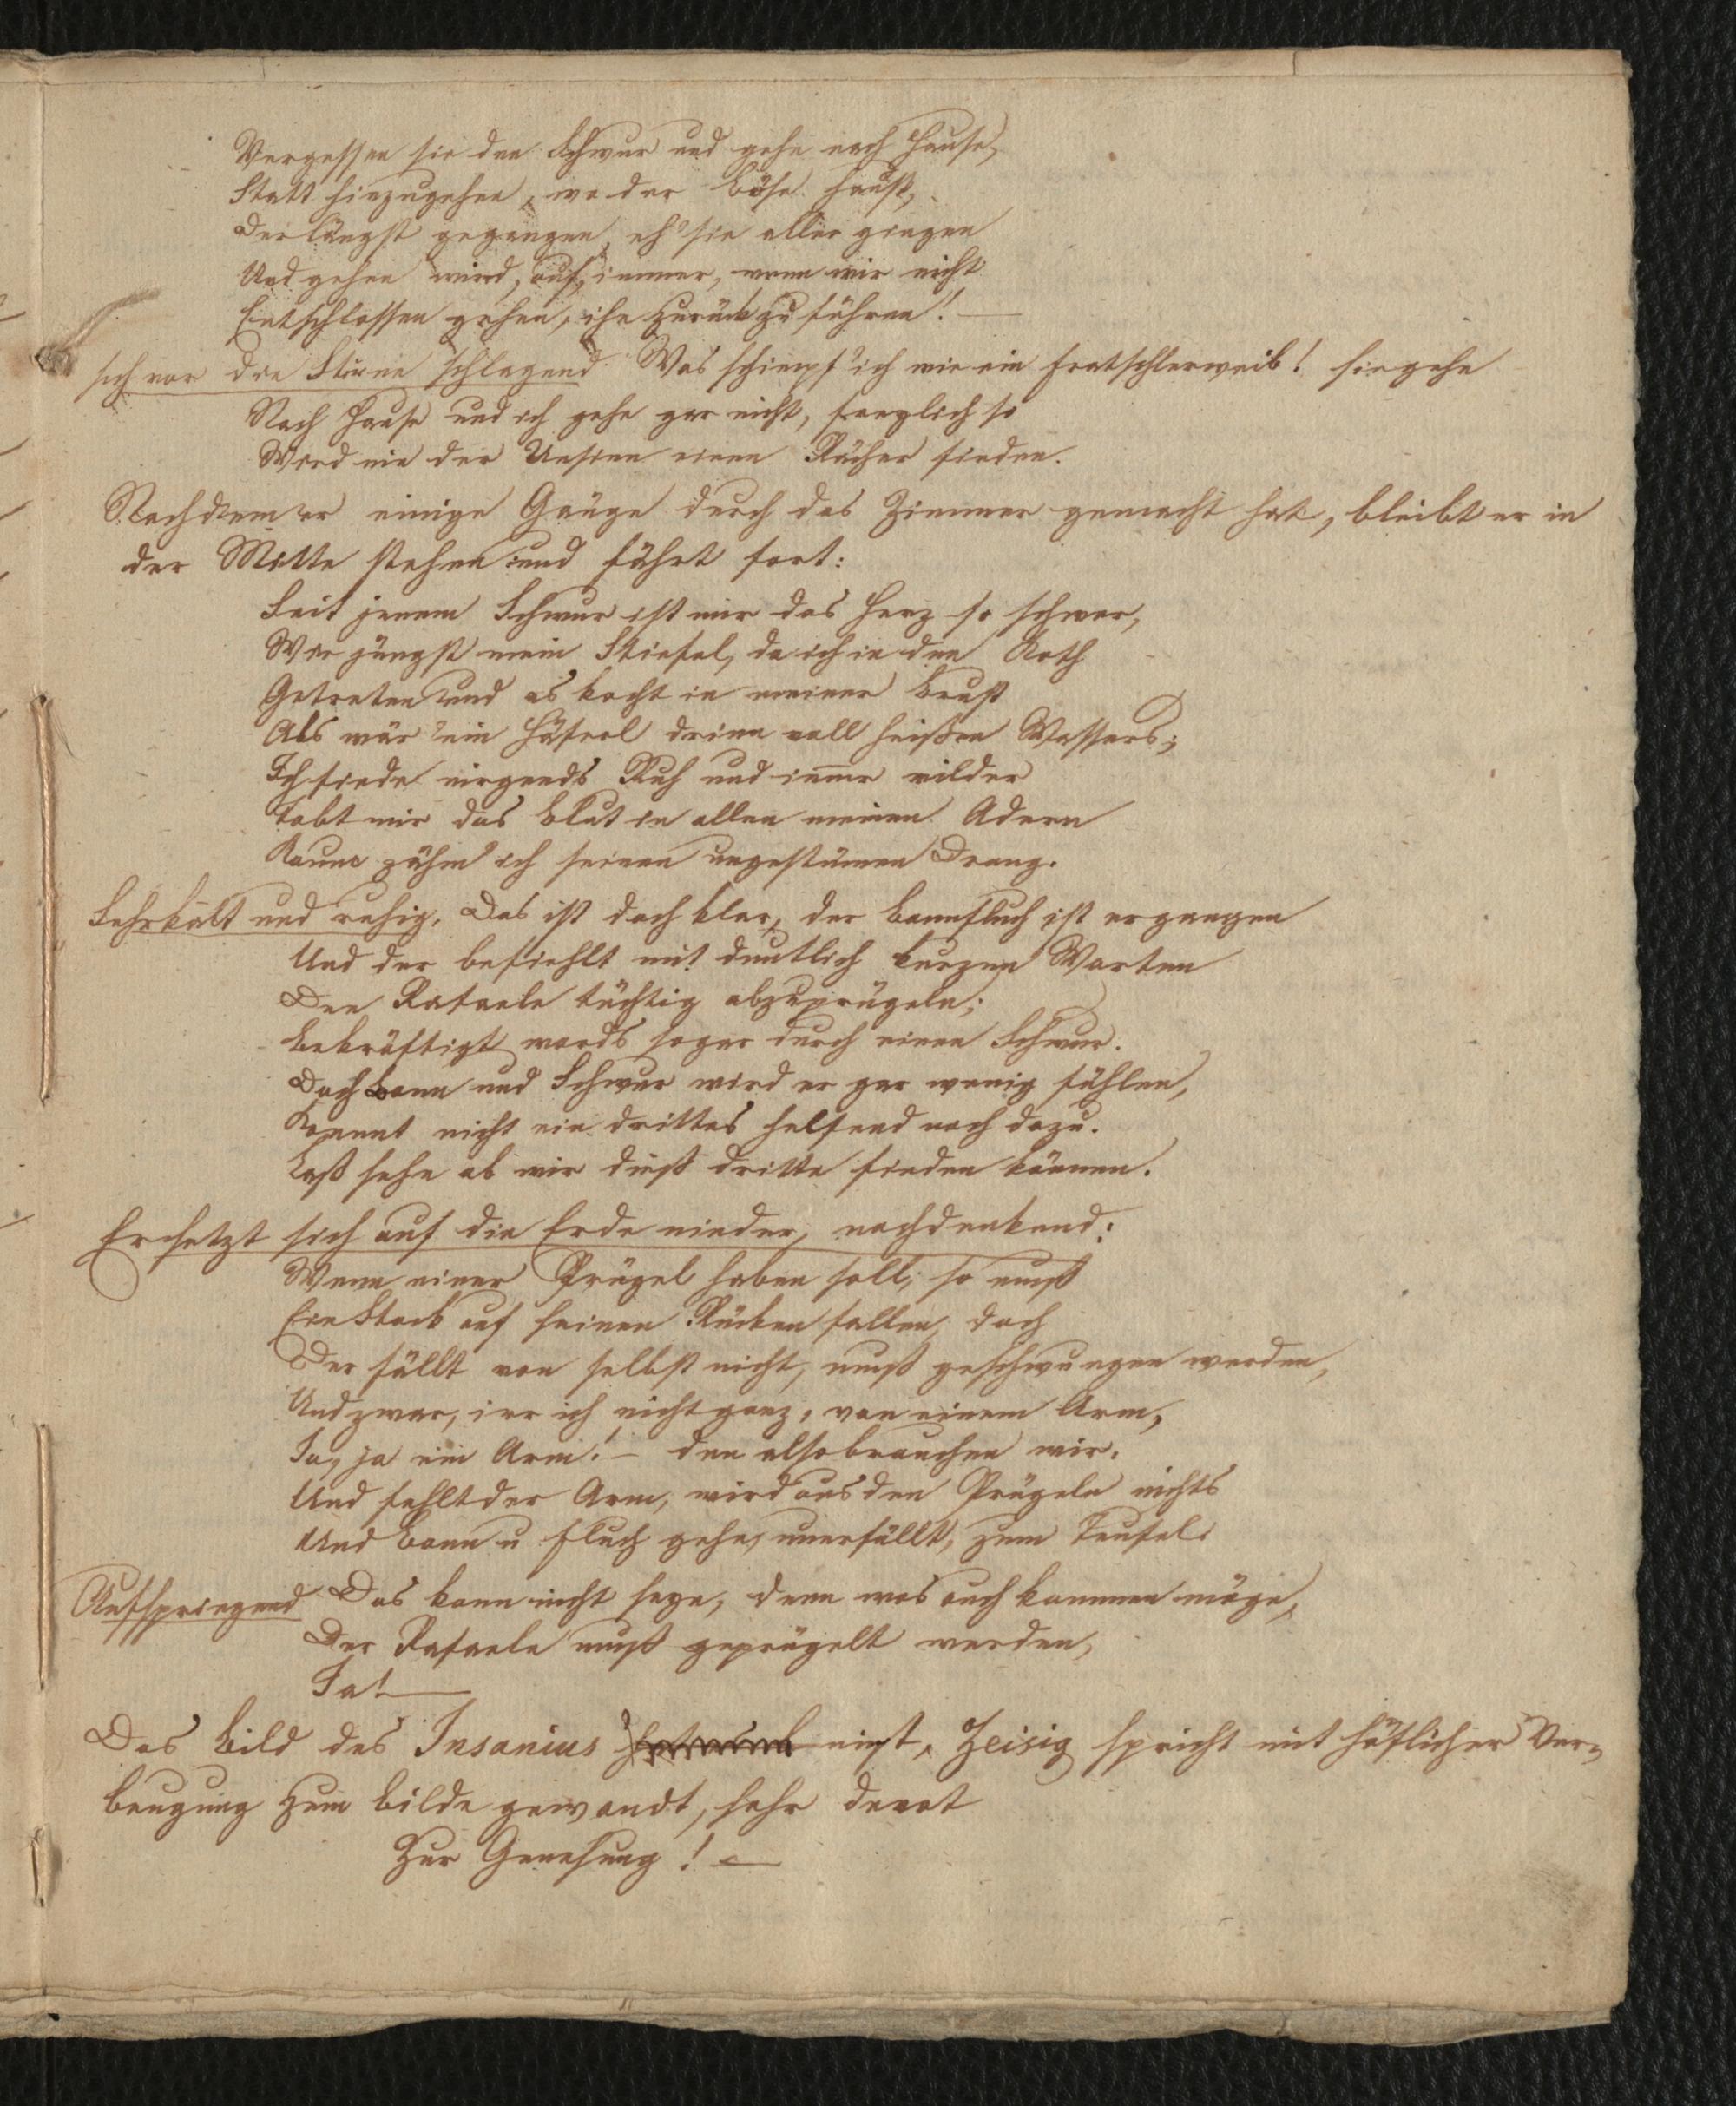 Vergessen sie den Schwur und gehn nach Hause,
Statt hinzugehen, wo der Böse haust,
Der längst gegangen, eh' sie aller gingen
Und gehen wird, auf immer, wenn wir nicht
Entschlossen gehen, ihn zurückzuführen! —
sich vor die Stirne schlagend Was schimpf' ich wie ein Fratschlerweib! sie gehn
Nach Hause und ich gehe gar nicht, freylich so
Wird nie der Unsinn einen Rächer finden.
Nachdem er einige Gänge durch das Zimmer gemacht hat, bleibt er in
der Mitte stehen und fährt fort:
Seit jenem Schwur ist mir das Herz so schwer,
Wie jüngst mein Stiefel, da ich in den Koth
Getreten und es kocht in meiner Brust
Als wär' ein Häferl drinn voll heißen Wassers;
Ich finde nirgends Ruh und immer wilder
Tobt mir das Blut in allen meinen Adern
Kaum zähm' ich seinen ungestümen Drang.
Sehr kalt und ruhig. Das ist doch klar, der Bannfluch ist ergangen
Und der befiehlt mit deutlich kurzen Worten
Den Rafaele tüchtig abzuprügeln;
Bekräftigt wards sogar durch einen Schwur.
Doch Bann und Schwur wird er gar wenig fühlen,
Kommt nicht ein drittes helfend noch dazu.
Laß sehn ob wir dieß dritte finden können.
Er setzt sich auf die Erde nieder, nachdenkend:
Wenn einer Prügel haben soll, so muß
Ein Stock auf seinen Rücken fallen, doch
Der fällt von selbst nicht, muß geschwungen werden,
Und zwar, irr ich nicht ganz, von einem Arm,
Ja, ja ein Arm! – den also brauchen wir.
Und fehlt der Arm, wird aus den Prügeln nichts
Und Bann u Fluch gehn, unerfüllt, zum Teufel.
Aufspringend Das kann nicht seyn, denn was auch kommen möge,
Der Rafaele muß geprügelt werden,
Ja! —
Das Bild des Insanius niest, Zeisig spricht mit höflicher Ver-
beugung zum Bilde gewandt, sehr devot
Zur Genesung! —